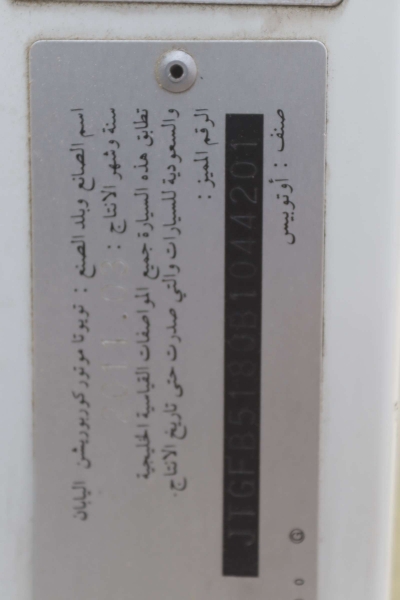 اسم الصانع وبلد الصنع : تويوتا موتور كوربوريشن اليابان
سنة وشهر الانتاج :
تطابق هذه السيارة جميع المواصفات القياسية الخليجية
والسعودية للسيارات والتي صدرت حتى تاريخ الانتاج.
الرقم المميز :
JTGFB5180B1044201
صنف : أوتوبيس